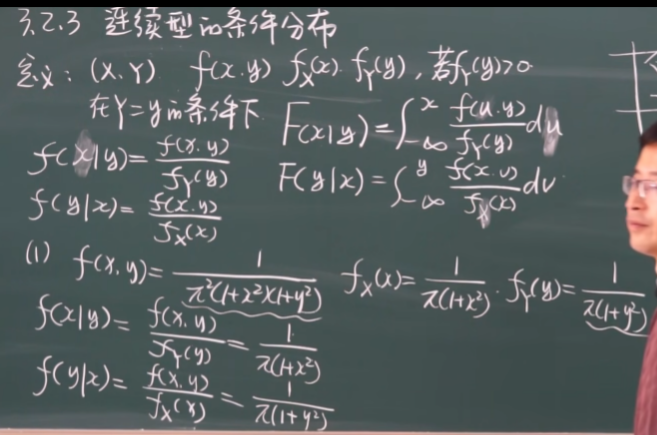 3.2.3 连续型的条件分布
定义: (X,Y) f(x,y) f_X(x). f_Y(y), 若f_Y(y)>0
在Y=y的条件下 F(x|y)=∫_{-∞}^{x} f(u,y)/f_Y(y) du
f(x|y)= f(x,y)/f_Y(y) F(y|x)=∫_{-∞}^{y} f(x,v)/f_X(x) dv
f(y|x)= f(x,y)/f_X(x)
(1) f(x,y)= 1/π²(1+x²)(1+y²) f_X(x)= 1/π(1+x²) . f_Y(y)= 1/π(1+y²)
f(x|y)= f(x,y)/f_Y(y) = 1/π(1+x²)
f(y|x)= f(x,y)/f_X(x) = 1/π(1+y²)